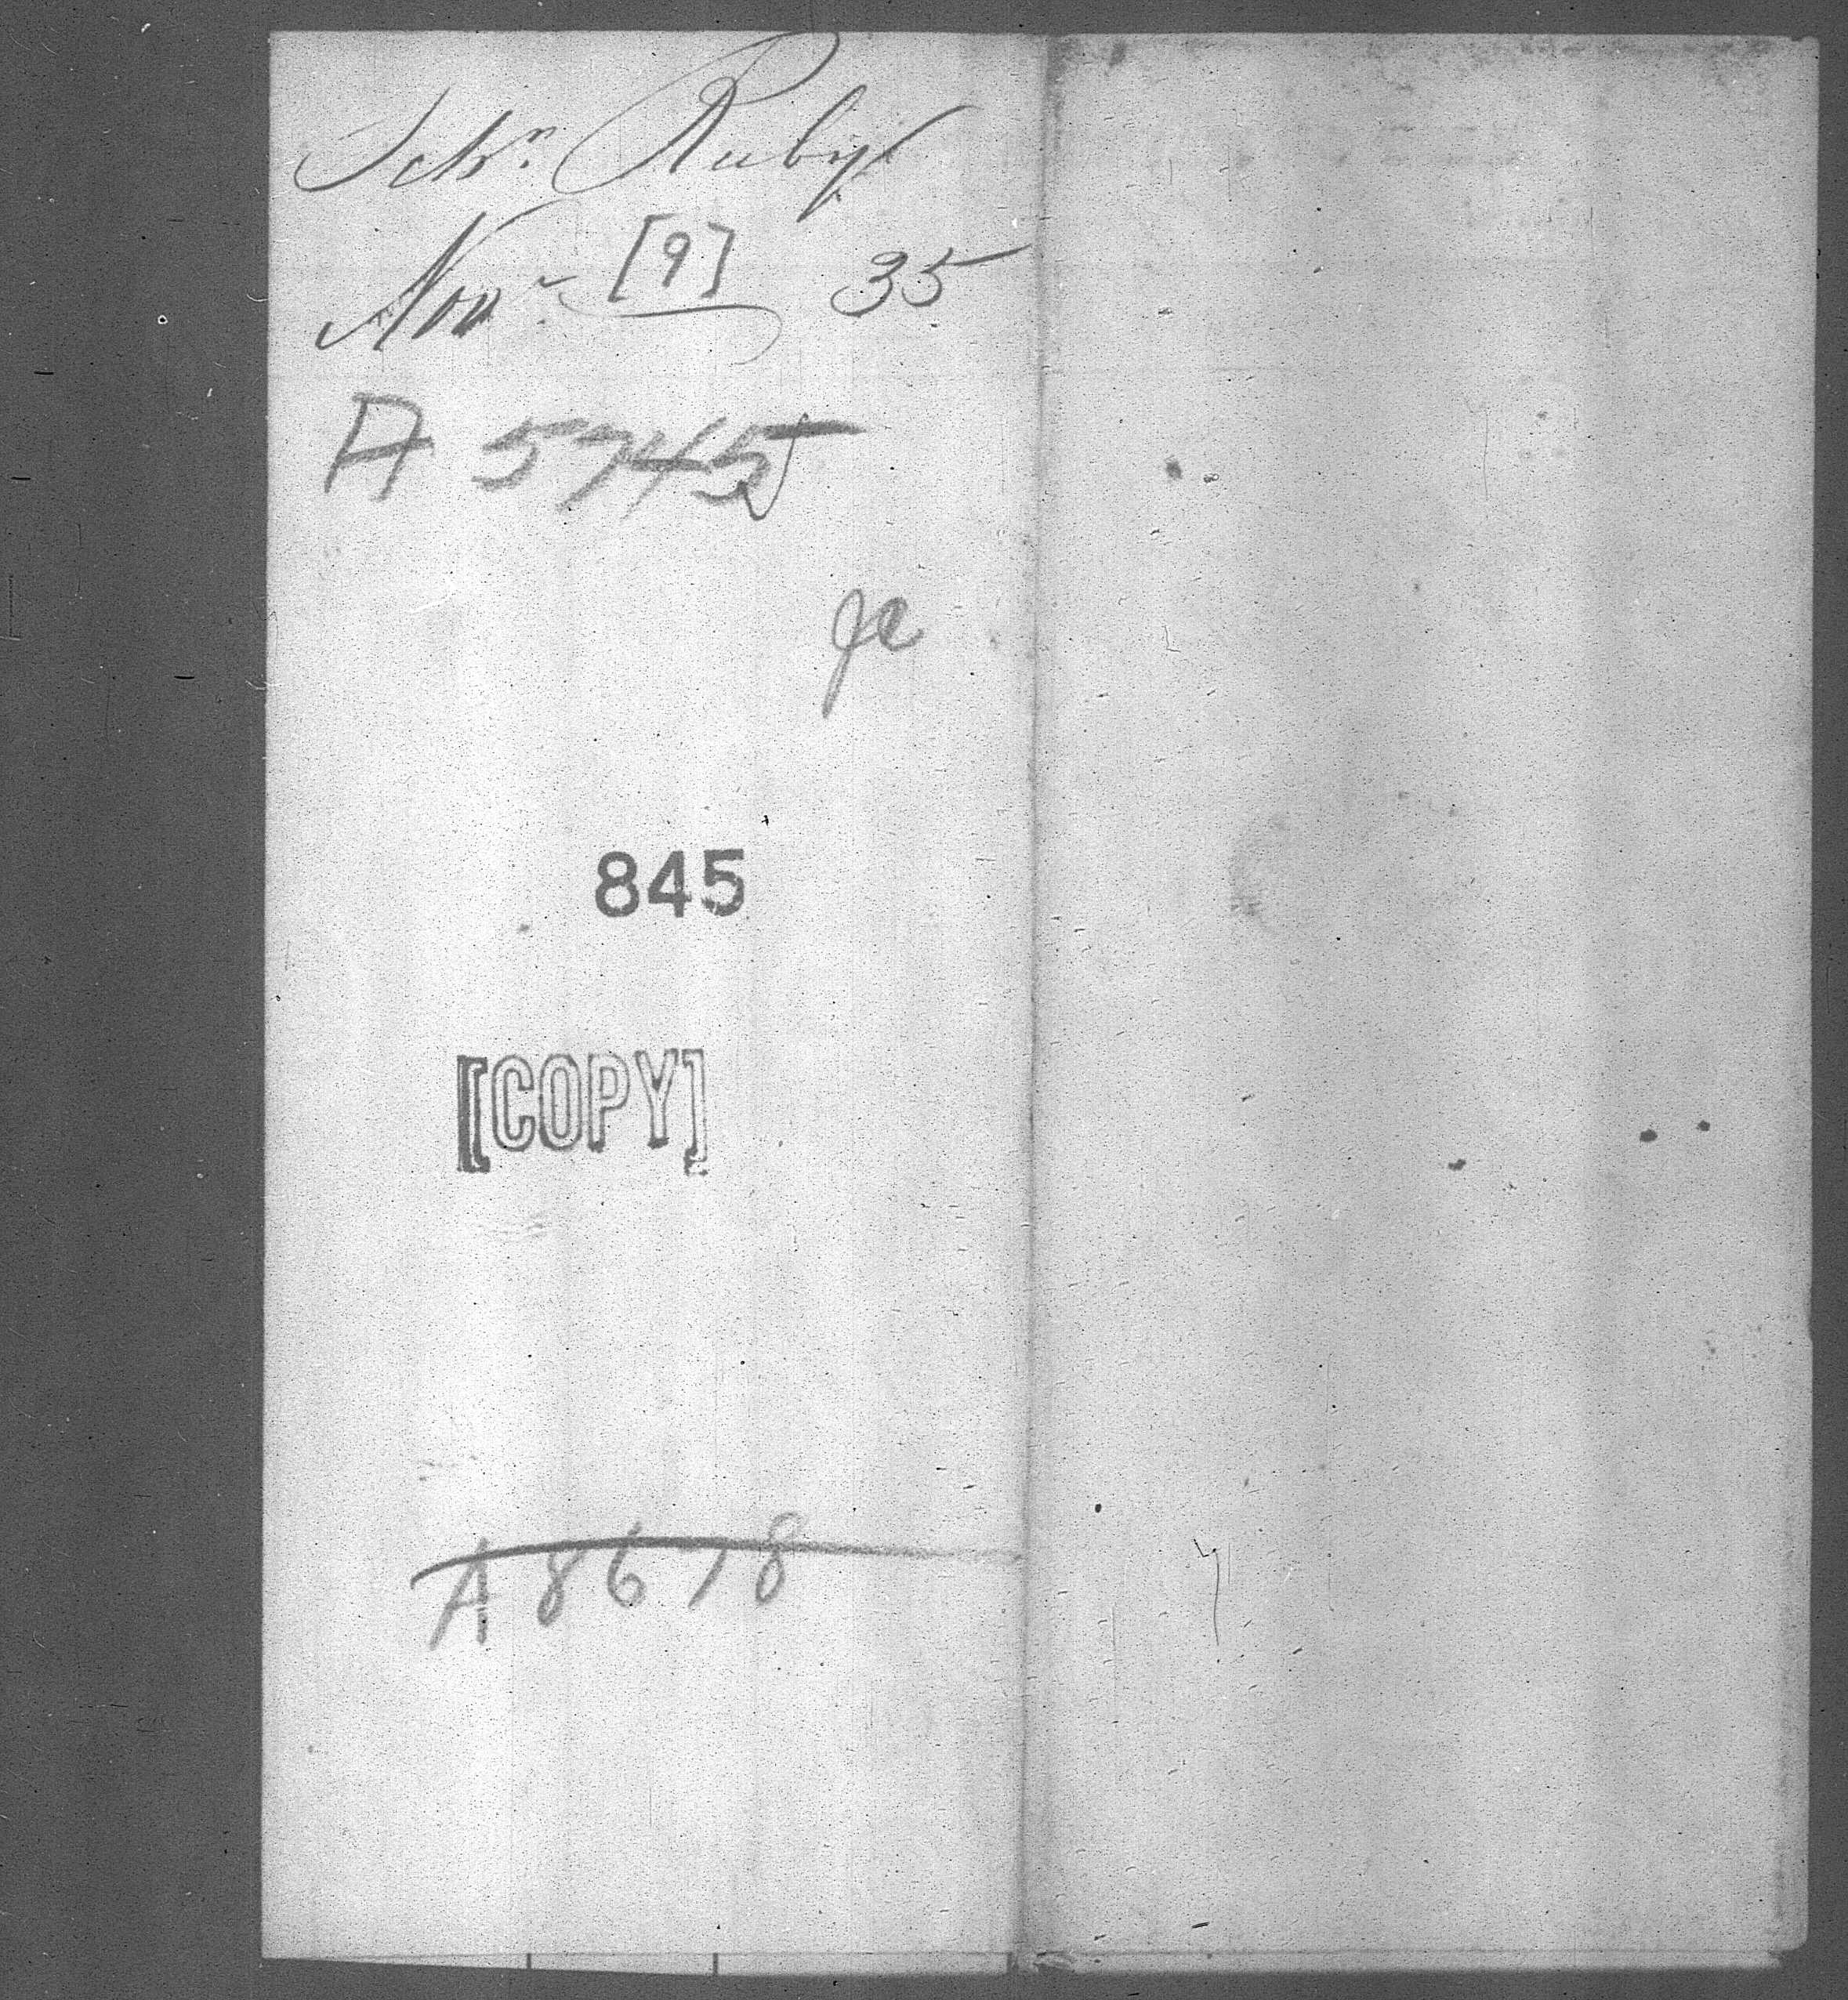 Schr. Ruby
Novr [9] 35
A 5745
845
[COPY]
A 8678